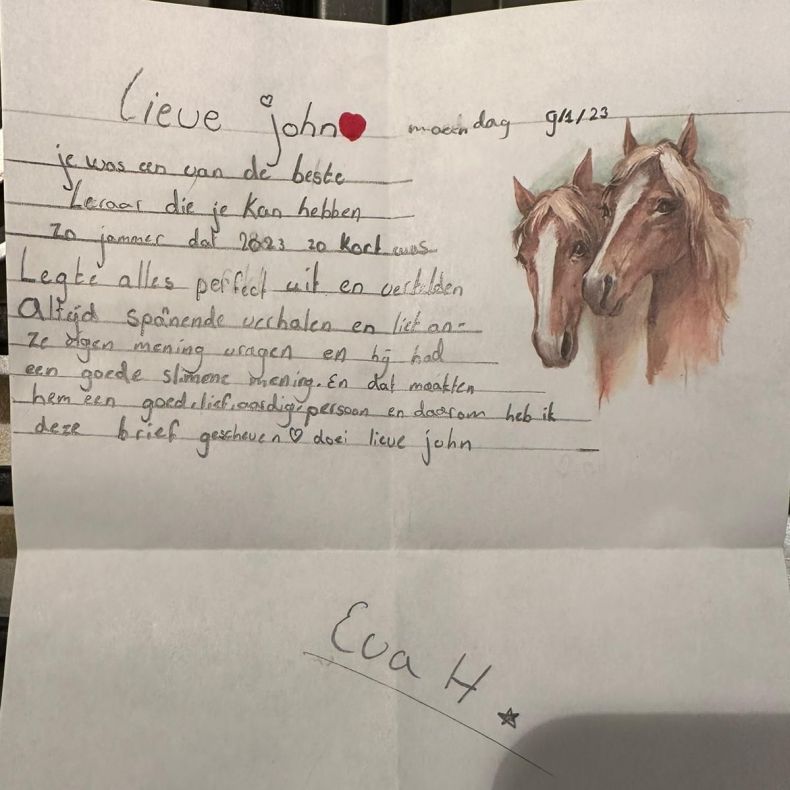 Lieve john
maendag 9/1/23
je was een van de beste
Leraar die je kan hebben
Zo jammer dat 2023 zo kort was
Legte alles perfect uit en vertelden
Altijd spanende verhalen en liet on-
ze eigen mening vragen en hij had
een goede slimene mening. En dat maakten
hem een goed, lief, aardige persoon en daarom heb ik
deze brief gescheven doei lieve john
Eva H.